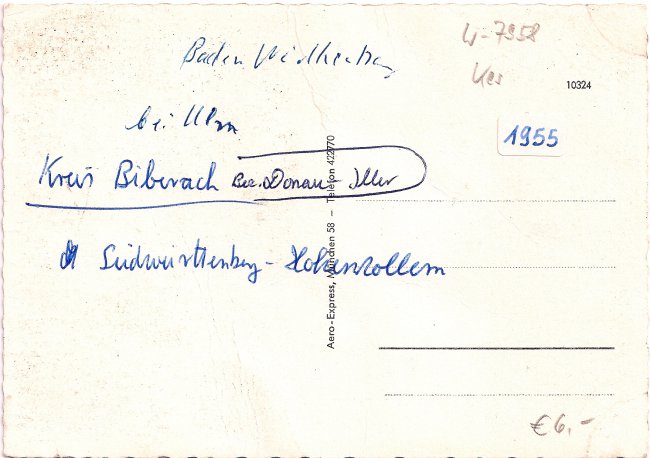 Baden Württenberg
4-7958
10324
bei Ulm
1955
Kreis Biberach Bez. Donau-Iller
Südwürttenberg-Hohenzollern
Aero-Express, München 58 – Telefon 422770
€ 6.-